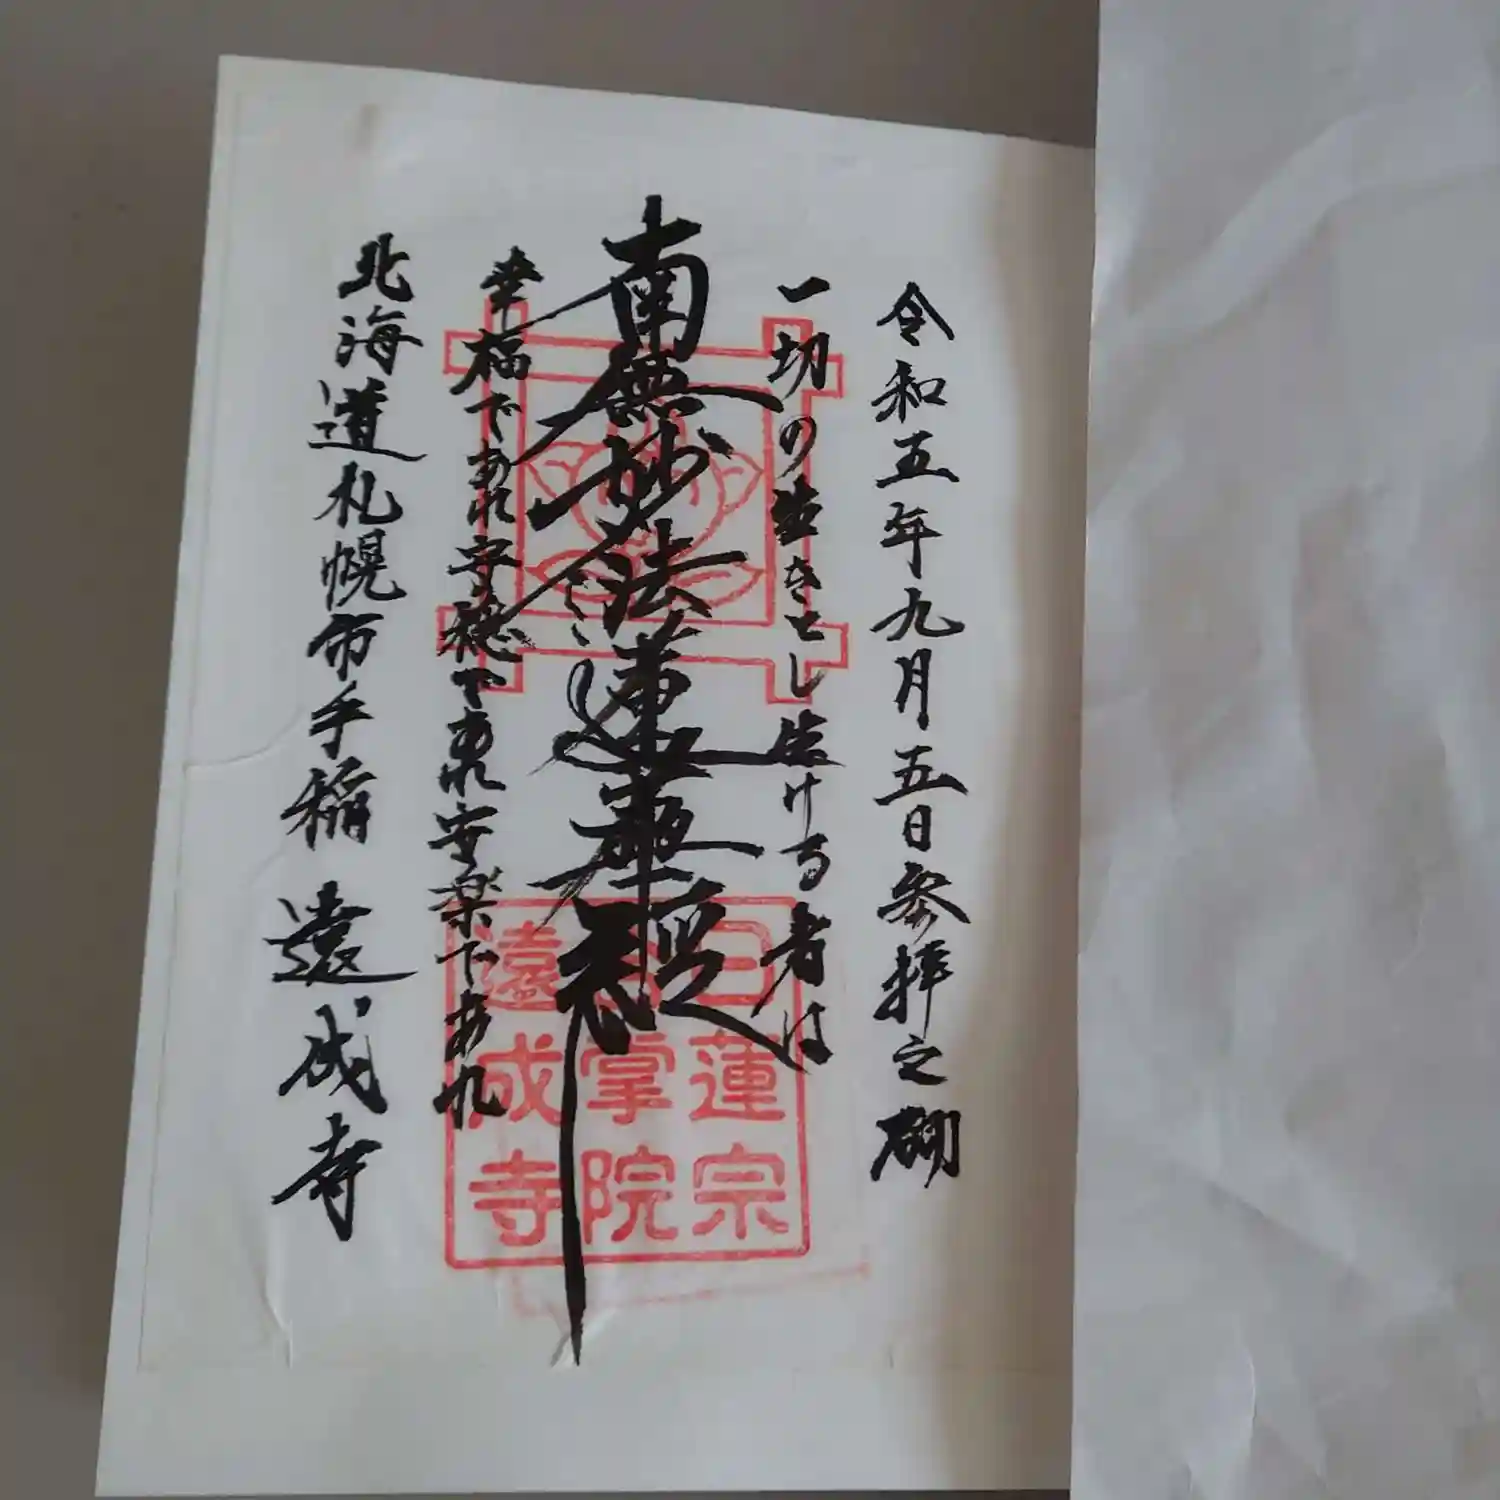 令和五年九月五日参拝之砌
一切の生きとし生ける者は
南無妙法蓮華経
幸福であれ安穏であれ安楽であれ
北海道札幌市手稲 遠成寺
日蓮宗
合掌院
遠成寺